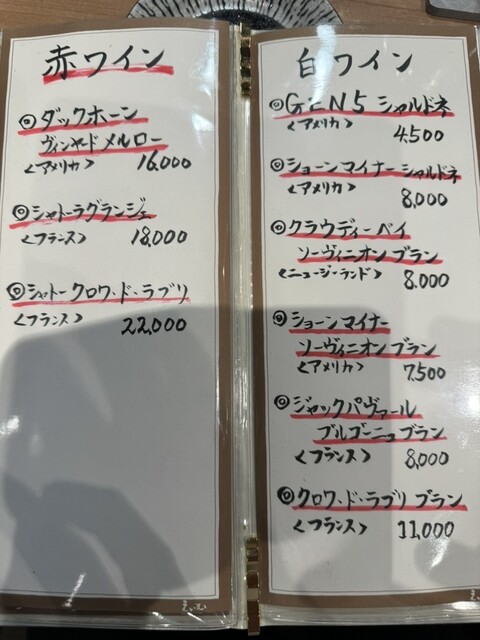 赤ワイン
◎ダックホーン
ヴィンヤードメルロー
<アメリカ> 16,000
◎シャトーラグランジェ
<フランス> 18,000
◎シャトークロワ・ド・ラブリ
<フランス> 22,000
白ワイン
◎GEN5 シャルドネ
<アメリカ> 4,500
◎ショーンマイナーシャルドネ
<アメリカ> 8,000
◎クラウディーベイ
ソーヴィニオンブラン
<ニュージーランド> 8,000
◎ショーンマイナー
ソーヴィニオンブラン
<アメリカ> 7,500
◎ジャックパヴァール
ブルゴーニュブラン
<フランス> 8,000
◎クロワ・ド・ラブリ ブラン
<フランス> 11,000